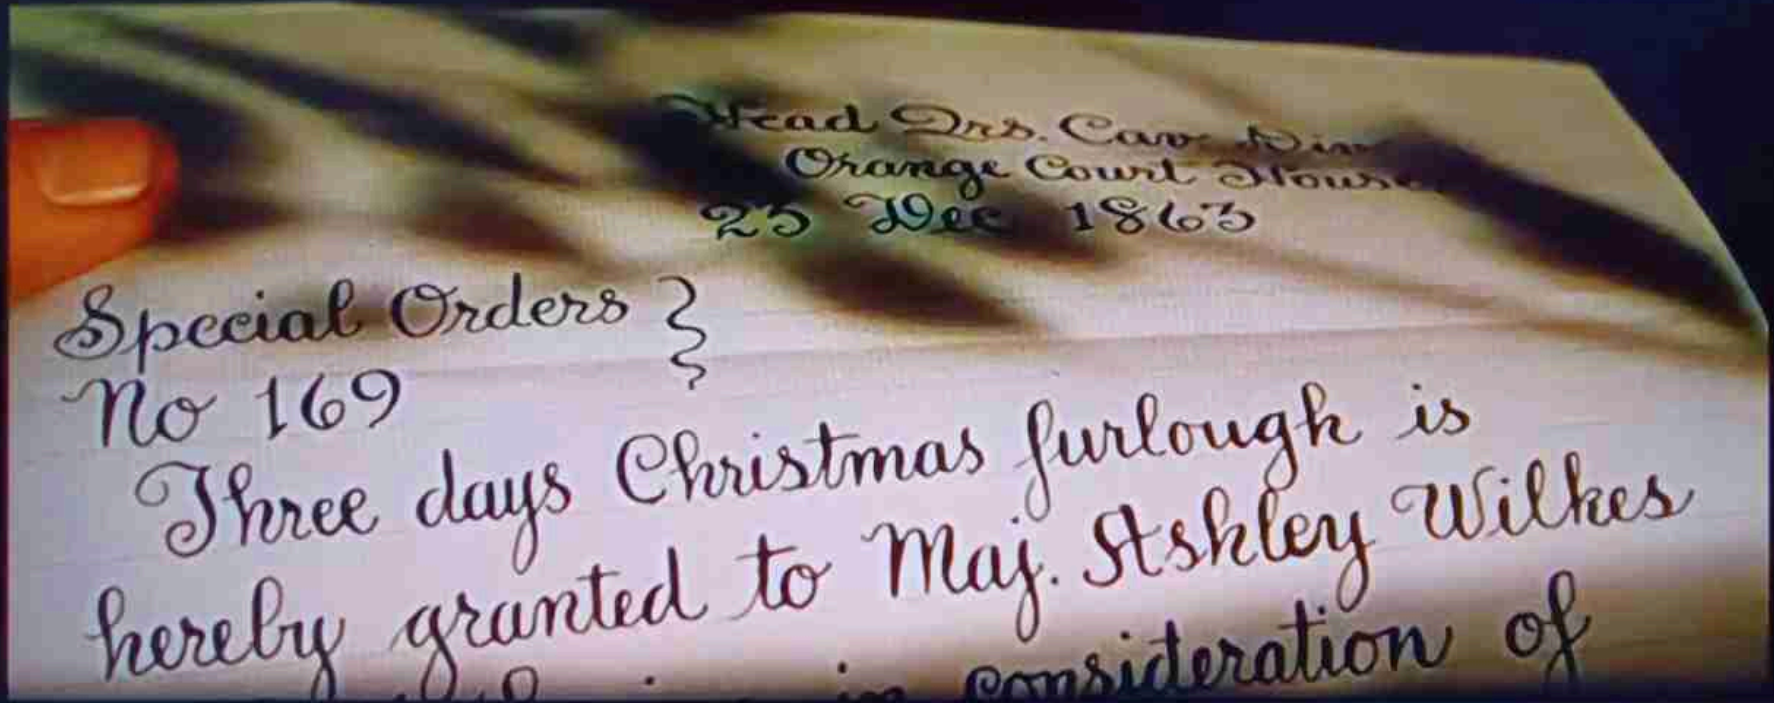 Head Qrs. Cav Div
Orange Court House
23 Dec 1863
Special Orders }
No 169
Three days Christmas furlough is
hereby granted to Maj. Ashley Wilkes
in consideration of